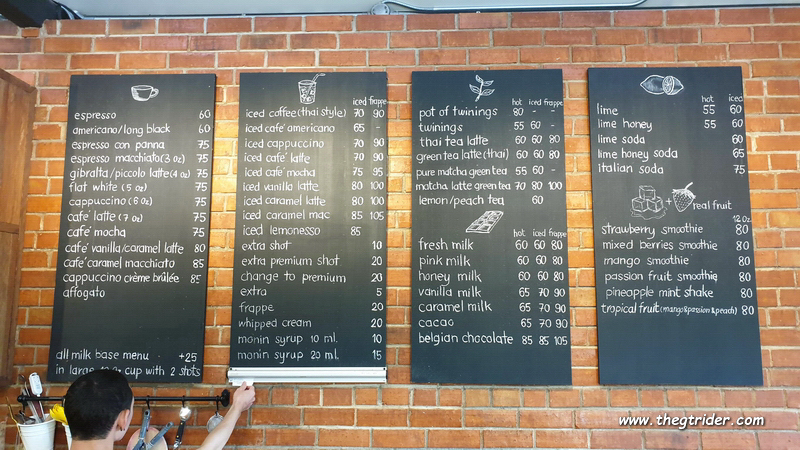 espresso 60
americano/long black 60
espresso con panna 75
espresso macchiato (3 oz) 75
gibralta/piccolo latte (4 oz) 75
flat white (5 oz) 75
cappuccino (6 oz) 75
café latte (7 oz) 75
café mocha 75
café vanilla/caramel latte 80
café caramel macchiato 85
cappuccino crème brûlée 85
affogato
all milk base menu +25
in large cup with 2 shots
iced frappe
iced coffee (thai style) 70 90
iced café americano 65 -
iced cappuccino 70 90
iced café latte 70 90
iced café mocha 75 95
iced vanilla latte 80 100
iced caramel latte 80 100
iced caramel mac 85 105
iced lemonesso 85
extra shot 10
extra premium shot 20
change to premium 20
extra 5
frappe 20
whipped cream 20
monin syrup 10 ml. 10
monin syrup 20 ml. 15
hot iced frappe
pot of twinings 80 - -
twinings 55 60 -
thai tea latte 60 60 80
green tea latte (thai) 60 60 80
pure matcha green tea 55 60 -
matcha latte green tea 70 80 100
lemon/peach tea 60
hot iced frappe
fresh milk 60 60 80
pink milk 60 60 80
honey milk 60 60 80
vanilla milk 65 70 90
caramel milk 65 70 90
cacao 65 70 90
belgian chocolate 85 85 105
hot iced
lime 55 60
lime honey 55 60
lime soda 60
lime honey soda 65
italian soda 75
+ real fruit
12 oz
strawberry smoothie 80
mixed berries smoothie 80
mango smoothie 80
passion fruit smoothie 80
pineapple mint shake 80
tropical fruit (mango&passion&peach) 80
www.thegtrider.com